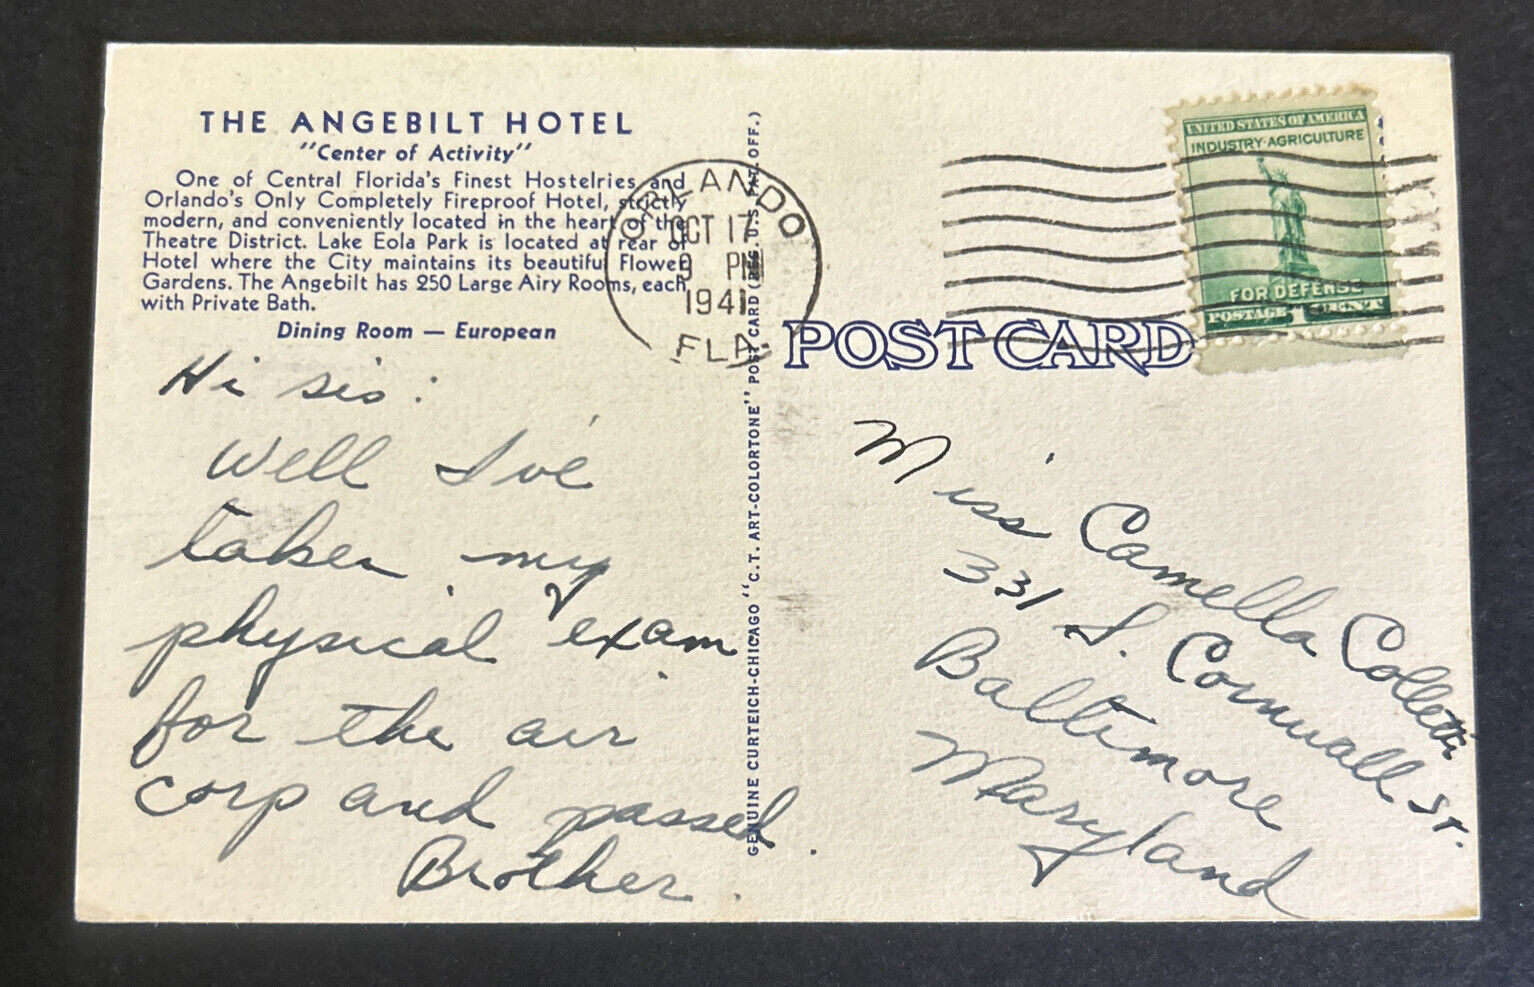 THE ANGEBILT HOTEL
"Center of Activity"
One of Central Florida's Finest Hostelries and
Orlando's Only Completely Fireproof Hotel, strictly
modern, and conveniently located in the heart of the
Theatre District. Lake Eola Park is located at rear of
Hotel where the City maintains its beautiful Flower
Gardens. The Angebilt has 250 Large Airy Rooms, each
with Private Bath.
Dining Room — European
Hi sis:
Well I've
taken my
physical exam
for the air
corp and passed.
Brother.
GENUINE CURTEICH-CHICAGO "C.T. ART-COLORTONE" POST CARD (REG. U.S. PAT. OFF.)
ORLANDO
OCT 17
9 PM
1941
FLA.
UNITED STATES OF AMERICA
INDUSTRY·AGRICULTURE
FOR DEFENSE
POSTAGE 1 CENT
POST CARD
Miss Camella Colletti
331 S. Cornwall St.
Baltimore
Maryland